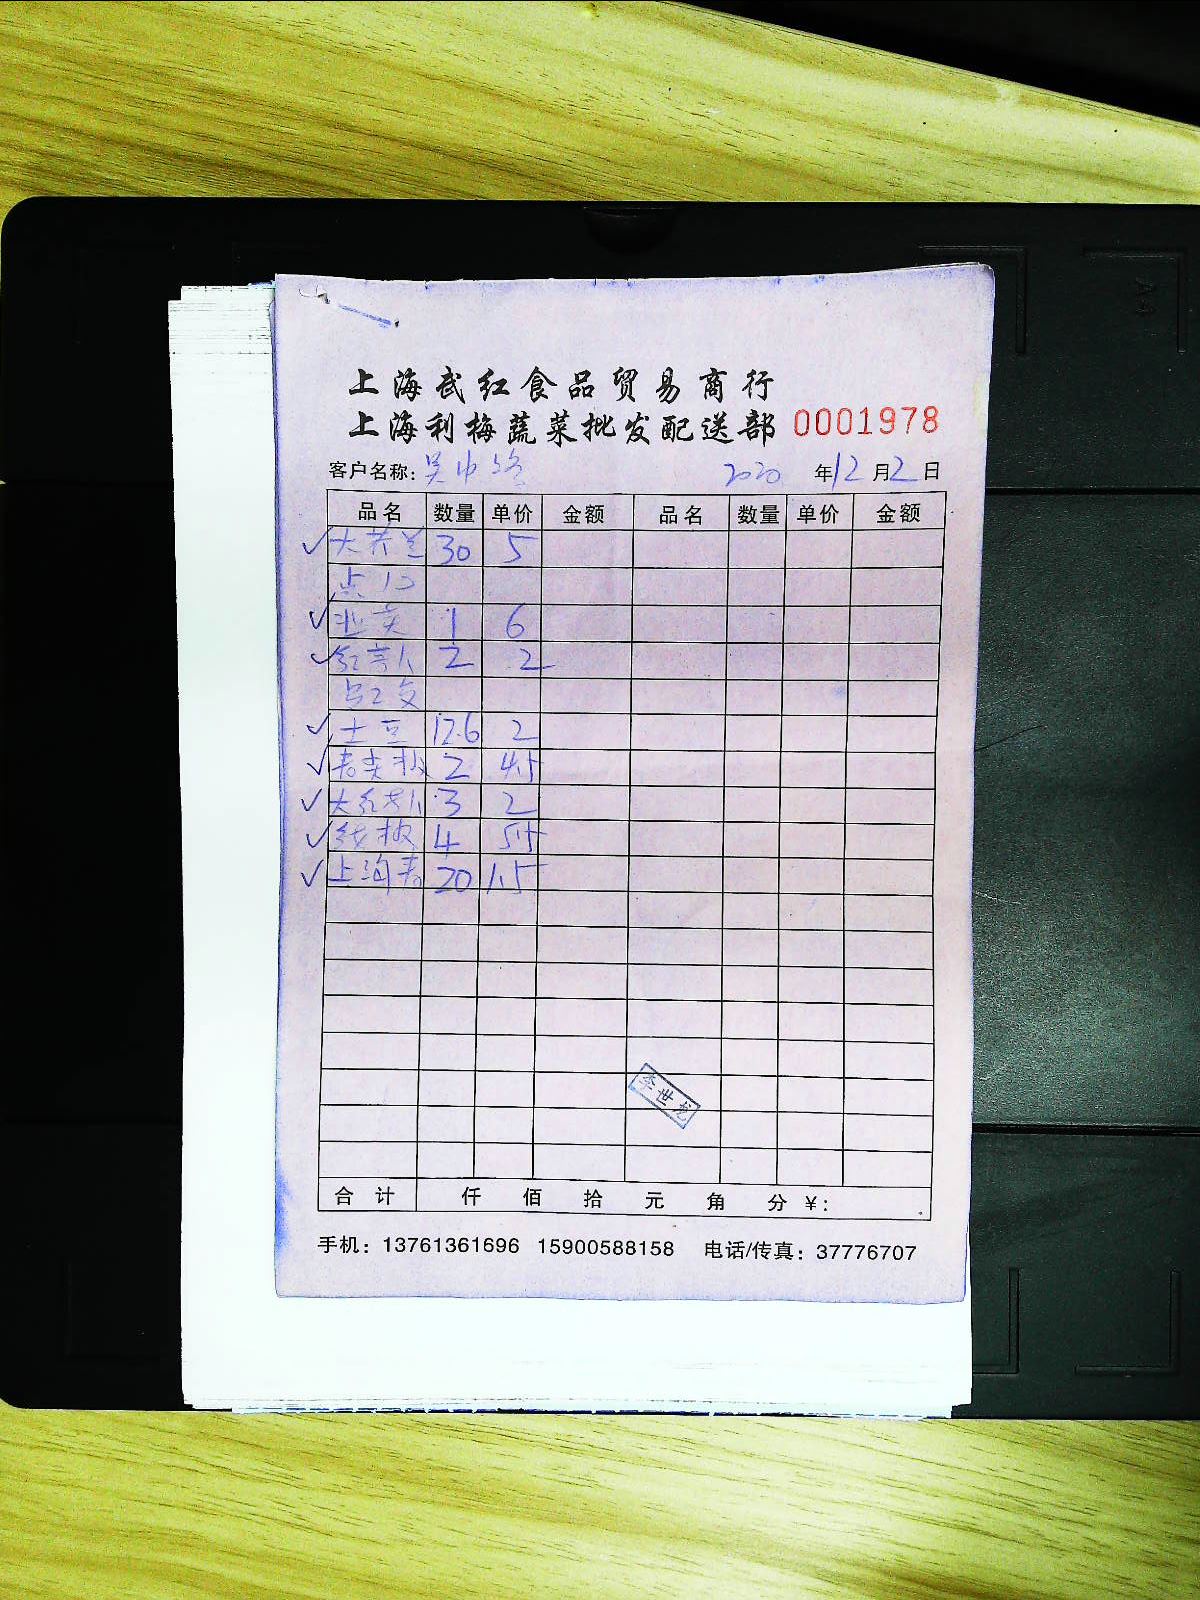 上海武红食品贸易商行
上海利梅蔬菜批发配送部 0001978
客户名称: 吴中路 2020 年 12 月 2 日
品名 数量 单价 金额 品名 数量 单价 金额
大芥兰 30 5
1 6
2 2
土豆 12.6 2
青尖椒 2 4.5
大红 3 2
线椒 4 5.5
上海青 20 1.5
李世龙
合计 仟 佰 拾 元 角 分 ¥:
手机: 13761361696 15900588158 电话/传真: 37776707